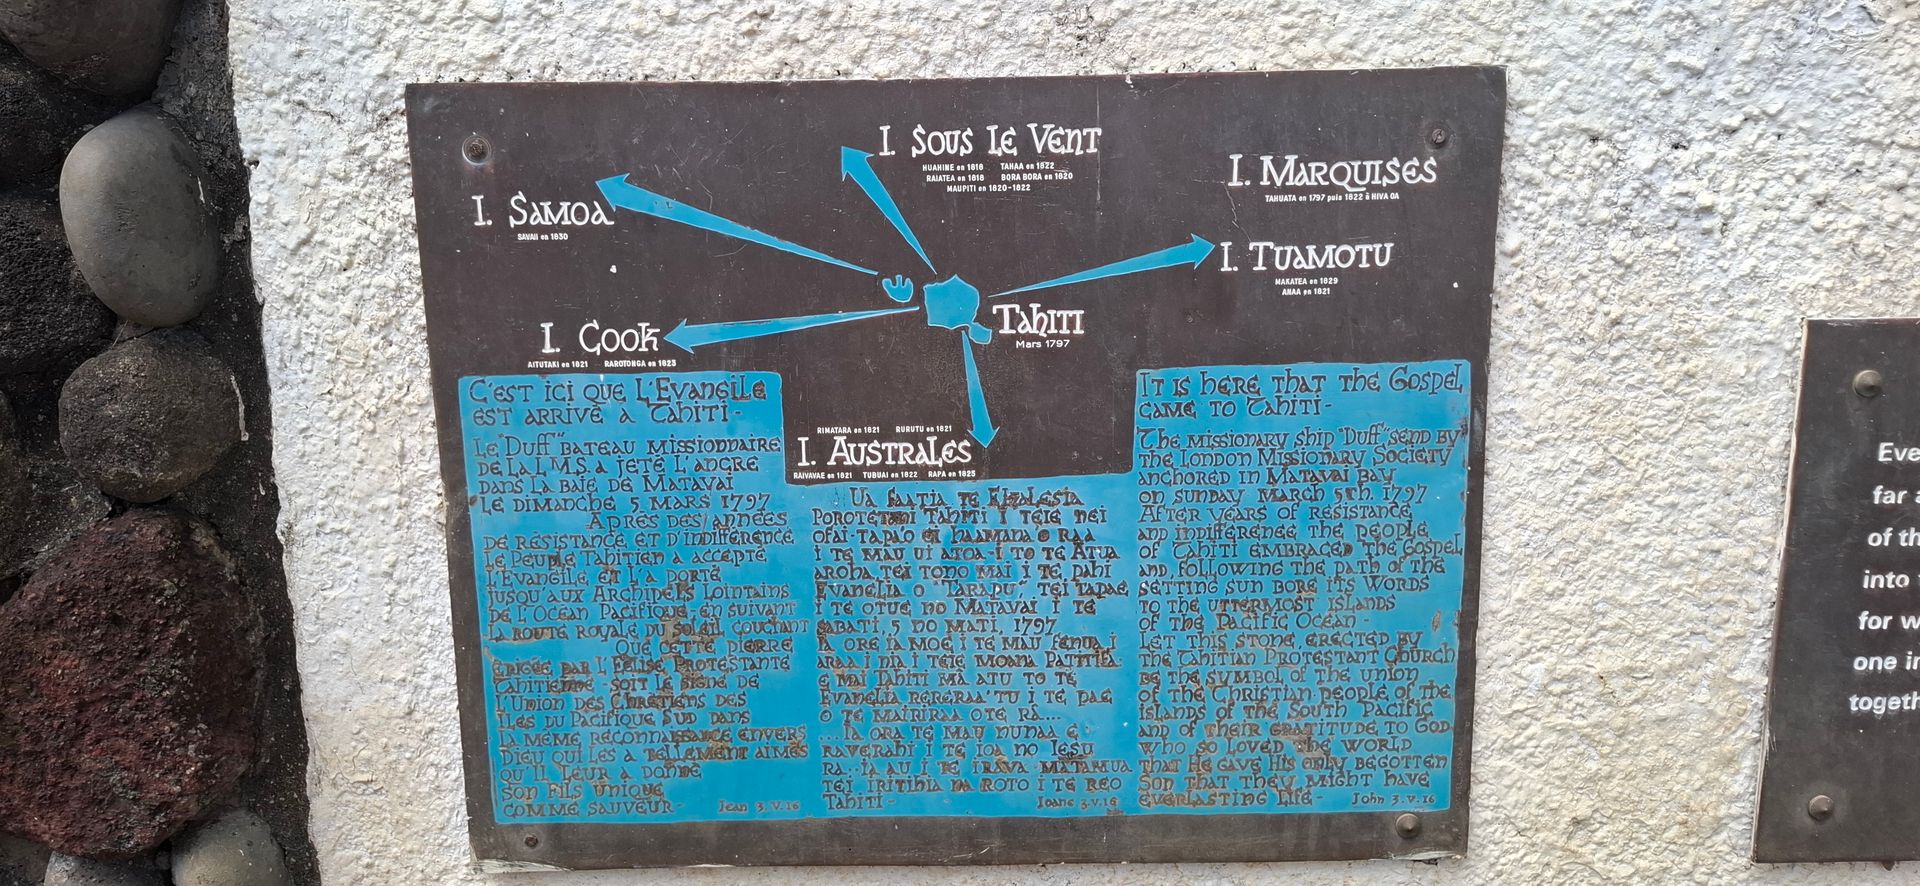 I. SOUS LE VENT
HUAHINE en 1818 TAHAA en 1822
RAIATEA en 1818 BORA BORA en 1820
MAUPITI en 1820-1822
I. MARQUISES
TAHUATA en 1797 puis 1822 à HIVA OA
I. SAMOA
SAVAII en 1830
I. TUAMOTU
MAKATEA en 1829
ANAA en 1821
I. COOK
AITUTAKI en 1821 RAROTONGA en 1823
TAHITI
Mars 1797
RIMATARA en 1821 RURUTU en 1821
I. AUSTRALES
RAIVAVAE en 1821 TUBUAI en 1822 RAPA en 1825
C'EST ICI QUE L'EVANGILE
EST ARRIVÉ A TAHITI -
LE "DUFF" BATEAU MISSIONNAIRE
DE LA L.M.S. A JETÉ L'ANCRE
DANS LA BAIE DE MATAVAI
LE DIMANCHE 5 MARS 1797
APRÈS DES ANNÉES
DE RÉSISTANCE ET D'INDIFFÉRENCE
LE PEUPLE TAHITIEN A ACCEPTÉ
L'EVANGILE ET L'A PORTÉ
JUSQU'AUX ARCHIPELS LOINTAINS
DE L'OCÉAN PACIFIQUE - EN SUIVANT
LA ROUTE ROYALE DU SOLEIL COUCHANT
QUE CETTE PIERRE
ÉRIGÉE PAR L'ÉGLISE PROTESTANTE
TAHITIENNE - SOIT LE SIGNE DE
L'UNION DES CHRÉTIENS DES
ILES DU PACIFIQUE SUD DANS
LA MÊME RECONNAISSANCE ENVERS
DIEU QUI LES A TELLEMENT AIMÉS
QU'IL LEUR A DONNÉ
SON FILS UNIQUE
COMME SAUVEUR - Jean 3.V.16
UA FAATIA TE EKALESIA
POROTETANI TAHITI I TEIE NEI
OFAI-TAPAO EI HAAMANA'O RAA
I TE MAU UI ATOA - I TO TE ATUA
AROHA TEI TONO MAI I TE PAHI
EVANELIA O "TARAPU", TEI TAPAE
I TE OTUE NO MATAVAI I TE
SABATI, 5 NO MATI, 1797
IA ORE IA MOE I TE MAU FENUA I
ARAA I NIA I TEIE MOANA PATITIFA:
E MAI TAHITI MA ATU TO TE
EVANELIA RERERAA'TU I TE PAE
O TE MAIRIRAA OTE RA...
...IA ORA TE MAU NUNAA E
RAVERAHI I TE IOA NO IESU
RA.. IA AU I TE IRAVA MATAMUA
TEI IRITIHIA NA ROTO I TE REO
TAHITI - Ioane 3.V.16
IT IS HERE THAT THE GOSPEL
CAME TO TAHITI -
THE MISSIONARY SHIP "DUFF" SEND BY
THE LONDON MISSIONARY SOCIETY
ANCHORED IN MATAVAI BAY
ON SUNDAY MARCH 5TH. 1797
AFTER YEARS OF RESISTANCE
AND INDIFFERENCE THE PEOPLE
OF TAHITI EMBRACED THE GOSPEL
AND, FOLLOWING THE PATH OF THE
SETTING SUN BORE ITS WORDS
TO THE UTTERMOST ISLANDS
OF THE PACIFIC OCEAN -
LET THIS STONE, ERECTED BY
THE TAHITIAN PROTESTANT CHURCH
BE THE SYMBOL OF THE UNION
OF THE CHRISTIAN PEOPLE OF THE
ISLANDS OF THE SOUTH PACIFIC
AND OF THEIR GRATITUDE TO GOD
WHO SO LOVED THE WORLD
THAT HE GAVE HIS ONLY BEGOTTEN
SON THAT THEY MIGHT HAVE
EVERLASTING LIFE - John 3.V.16
Eve
far
of th
into
for w
one in
togeth